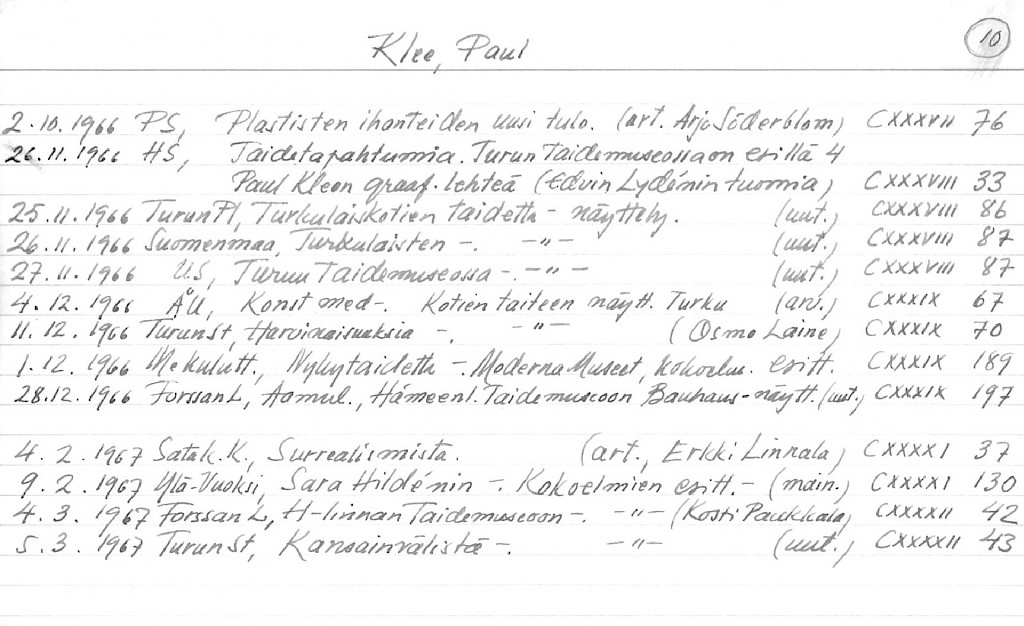 Klee, Paul
10
2.10.1966 PS, Plastisten ihanteiden uusi tulo. (art. Arjo Söderblom) CXXXVII 76
26.11.1966 HS, Taidetapahtumia. Turun Taidemuseossa on esillä 4
Paul Kleen graaf. lehteä (Edvin Lydénin tuomia) CXXXVIII 33
25.11.1966 Turun Pl, Turkulaiskotien taidetta - näyttely. (uut.) CXXXVIII 86
26.11.1966 Suomenmaa, Turkulaisten -. -"- (uut.) CXXXVIII 87
27.11.1966 US, Turun Taidemuseossa -. -"- (uut.) CXXXVIII 87
4.12.1966 ÅU, Konst med -. Kotien taiteen näytt. Turku (arv.) CXXXIX 67
11.12.1966 Turun St, Harvinaisuuksia -. -"- (Osmo Laine) CXXXIX 70
1.12.1966 Me kulutt., Nykytaidetta -. Moderna Museet, kokoelm. esitt. CXXXIX 189
28.12.1966 Forssan L, Aamul., Hämeenl. Taidemuseoon Bauhaus-näytt. (uut.) CXXXIX 197
4.2.1967 Satak.K., Surrealismista. (art., Erkki Linnala) CXXXXI 37
9.2.1967 Ylä-Vuoksi, Sara Hildénin -. Kokoelmien esitt. - (main.) CXXXXI 130
4.3.1967 Forssan L, H-linnan Taidemuseoon -. -"- (Kosti Paukkala) CXXXXII 42
5.3.1967 Turun St, Kansainvälistä -. -"- (uut.) CXXXXII 43